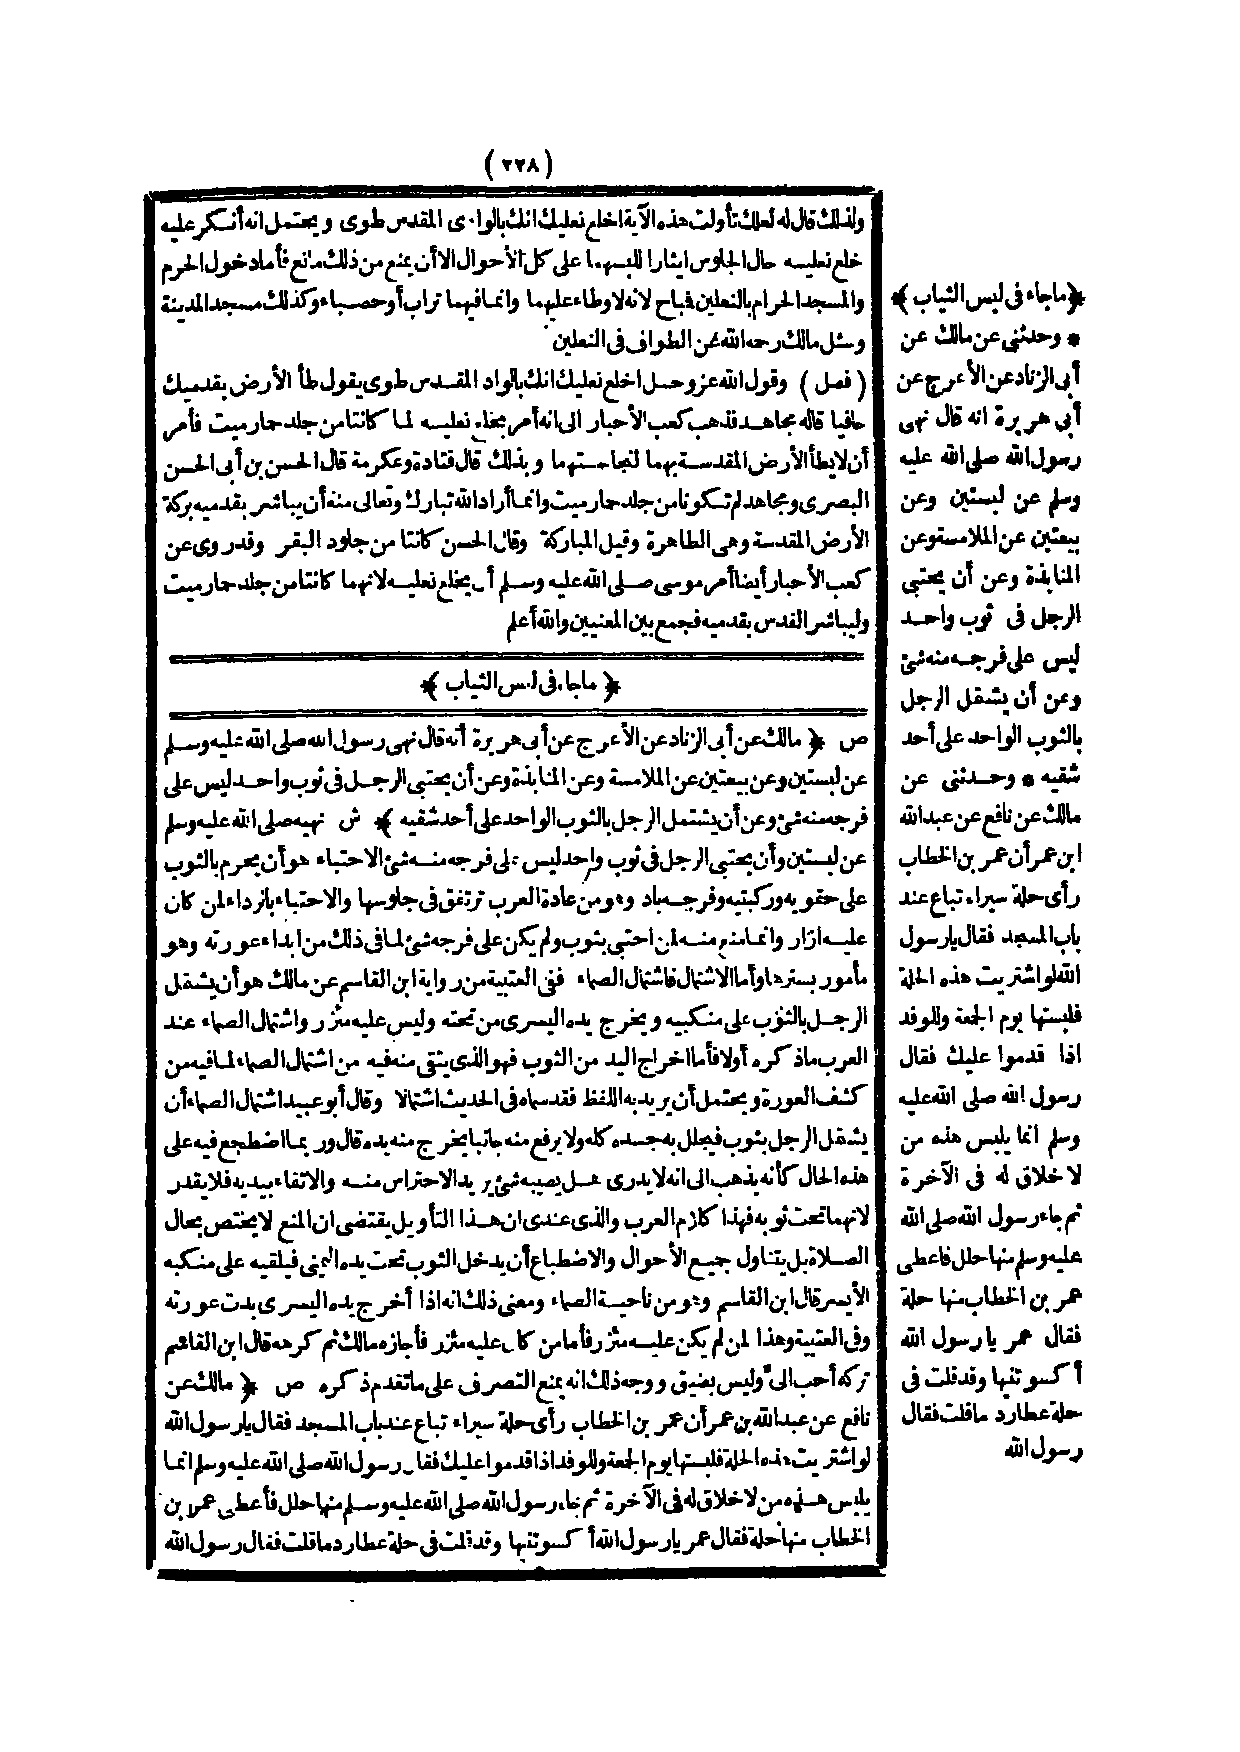 (٢٢٨)
ولذلك قال له لعلك تأولت هذه الآية اخلع نعليك انك بالوادى المقدس طوى ويحتمل انه أنكر عليه
خلع نعليه حال الجلوس ايثارا للبسهما على كل الأحوال الا أن يمنع من ذلك مانع فأما دخول الحرم
والمسجد الحرام بالنعلين فباح لانه لا وطاء عليهما وانما فيهما تراب أو حصباء وكذلك مسجد المدينة
وسئل مالك رحمه الله عن الطواف فى النعلين
(فصل) وقول الله عز وجل اخلع نعليك انك بالواد المقدس طوى يقول طأ الأرض بقدميك
حافيا قاله مجاهد فذهب كعب الأحبار الى انه أمر بخلع نعليه لما كانتا من جلد حمار ميت فأمر
أن لا يطأ الأرض المقدسة بهما لنجاستهما وبذلك قال قتادة وعكرمة قال الحسن بن أبى الحسن
البصرى ومجاهد لم تكونا من جلد حمار ميت وانما أراد الله تبارك وتعالى منه أن يباشر بقدميه بركة
الأرض المقدسة وهى الطاهرة وقيل المباركة وقال الحسن كانتا من جلود البقر وقد روى عن
كعب الأحبار أيضا أمر موسى صلى الله عليه وسلم أن يخلع نعليه لانهما كانتا من جلد حمار ميت
وليباشر القدس بقدميه فجمع بين المعنيين والله أعلم
﴿ ماجاء فى لبس الثياب ﴾
ص ﴿ مالك عن أبى الزناد عن الأعرج عن أبى هريرة أنه قال نهى رسول الله صلى الله عليه وسلم
عن لبستين وعن بيعتين عن الملامسة وعن المنابذة وعن أن يحتبى الرجل فى ثوب واحد ليس على
فرجه منه شئ وعن أن يشتمل الرجل بالثوب الواحد على أحد شقيه ﴾ ش نهيه صلى الله عليه وسلم
عن لبستين وأن يحتبى الرجل فى ثوب واحد ليس على فرجه منه شئ الاحتباء هو أن يحرم بالثوب
على حقويه وركبتيه وفرجه باد وهو من عادة العرب ترتفق فى جلوسها والاحتباء بالرداء لمن كان
عليه ازار وانما منع منه لمن احتبى بثوب ولم يكن على فرجه شئ لما فى ذلك من ابداء عورته وهو
مأمور بسترها وأما الاشتمال فاشتمال الصماء ففى العتبية من رواية ابن القاسم عن مالك هو أن يشتمل
الرجل بالثوب على منكبيه ويخرج يده اليسرى من تحته وليس عليه مئزر واشتمال الصماء عند
العرب ما ذكره أولا فأما اخراج اليد من الثوب فهو الذى يتقى منه فيه من اشتمال الصماء لما فيه من
كشف العورة ويحتمل أن يريد به اللفظ فقد سماه فى الحديث اشتمالا وقال أبو عبيد اشتمال الصماء أن
يشتمل الرجل بثوب فيجلل به جسده كله ولا يرفع منه جانبا يخرج منه يده قال وربما اضطجع فيه على
هذه الحال كأنه يذهب الى انه لا يدرى هل يصيبه شئ يريد الاحتراس منه والاتقاء بيديه فلا يقدر
لانهما تحت ثوبه فهذا كلام العرب والذى عندى ان هذا التأويل يقتضى ان المنع لا يختص بحال
الصلاة بل يتناول جميع الأحوال والاضطباع أن يدخل الثوب تحت يده اليمنى فيلقيه على منكبه
الأيسر قال ابن القاسم وهو من ناحية الصماء ومعنى ذلك انه اذا أخرج يده اليسرى بدت عورته
وفى العتبية وهذا لمن لم يكن عليه مئزر فأما من كان عليه مئزر فأجازه مالك ثم كرهه قال ابن القاسم
تركه أحب الى وليس بضيق ووجه ذلك انه يمنع التصرف على ما تقدم ذكره ص ﴿ مالك عن
نافع عن عبد الله بن عمر أن عمر بن الخطاب رأى حلة سيراء تباع عند باب المسجد فقال يا رسول الله
لو اشتريت هذه الحلة فلبستها يوم الجمعة وللوفد اذا قدموا عليك فقال رسول الله صلى الله عليه وسلم انما
يلبس هذه من لا خلاق له فى الآخرة ثم جاء رسول الله صلى الله عليه وسلم منها حلل فأعطى عمر بن
الخطاب منها حلة فقال عمر يا رسول الله أكسوتنيها وقد قلت فى حلة عطارد ما قلت فقال رسول الله
﴿ ماجاء فى لبس الثياب ﴾
* وحدثنى عن مالك عن
أبى الزناد عن الأعرج عن
أبى هريرة انه قال نهى
رسول الله صلى الله عليه
وسلم عن لبستين وعن
بيعتين عن الملامسة وعن
المنابذة وعن أن يحتبى
الرجل فى ثوب واحد
ليس على فرجه منه شئ
وعن أن يشتمل الرجل
بالثوب الواحد على أحد
شقيه * وحدثنى عن
مالك عن نافع عن عبد الله
ابن عمر أن عمر بن الخطاب
رأى حلة سيراء تباع عند
باب المسجد فقال يا رسول
الله لو اشتريت هذه الحلة
فلبستها يوم الجمعة وللوفد
اذا قدموا عليك فقال
رسول الله صلى الله عليه
وسلم انما يلبس هذه من
لا خلاق له فى الآخرة
ثم جاء رسول الله صلى الله
عليه وسلم منها حلل فاعطى
عمر بن الخطاب منها حلة
فقال عمر يا رسول الله
أكسوتنيها وقد قلت فى
حلة عطارد ما قلت فقال
رسول الله